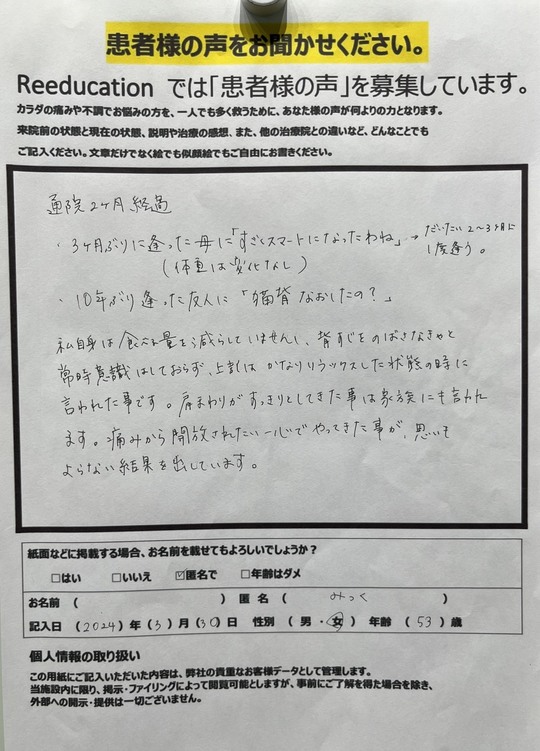 患者様の声をお聞かせください。
Reeducation では「患者様の声」を募集しています。
カラダの痛みや不調でお悩みの方を、一人でも多く救うために、あなた様の声が何よりの力となります。
来院前の状態と現在の状態、説明や治療の感想、また、他の治療院との違いなど、どんなことでも
ご記入ください。文章だけでなく絵でも似顔絵でもご自由にお書きください。
通院2ヶ月経過
・3ヶ月ぶりに逢った母に「すごくスマートになったわね」→だいたい2〜3ヶ月に
(体重は変化なし) 1度逢う。
・10年ぶり逢った友人に「猫背なおしたの?」
私自身は食べる量を減らしていませんし、背すじをのばさなきゃと
常時意識はしておらず、上記はかなりリラックスした状態の時に
言われた事です。肩まわりがすっきりとしてきた事は家族にも言われ
ます。痛みから開放されたい一心でやってきた事が、思いも
よらない結果を出しています。
紙面などに掲載する場合、お名前を載せてもよろしいでしょうか?
□はい □いいえ ☑匿名で □年齢はダメ
お名前 ( ) 匿 名 ( みっく )
記入日 (2024)年(3)月(30)日 性別 (男・女) 年齢 (53)歳
個人情報の取り扱い
この用紙にご記入いただいた内容は、弊社の貴重なお客様データとして管理します。
当施設内に限り、掲示・ファイリングによって閲覧可能としますが、事前にご了解を得た場合を除き、
外部への開示・提供は一切ございません。